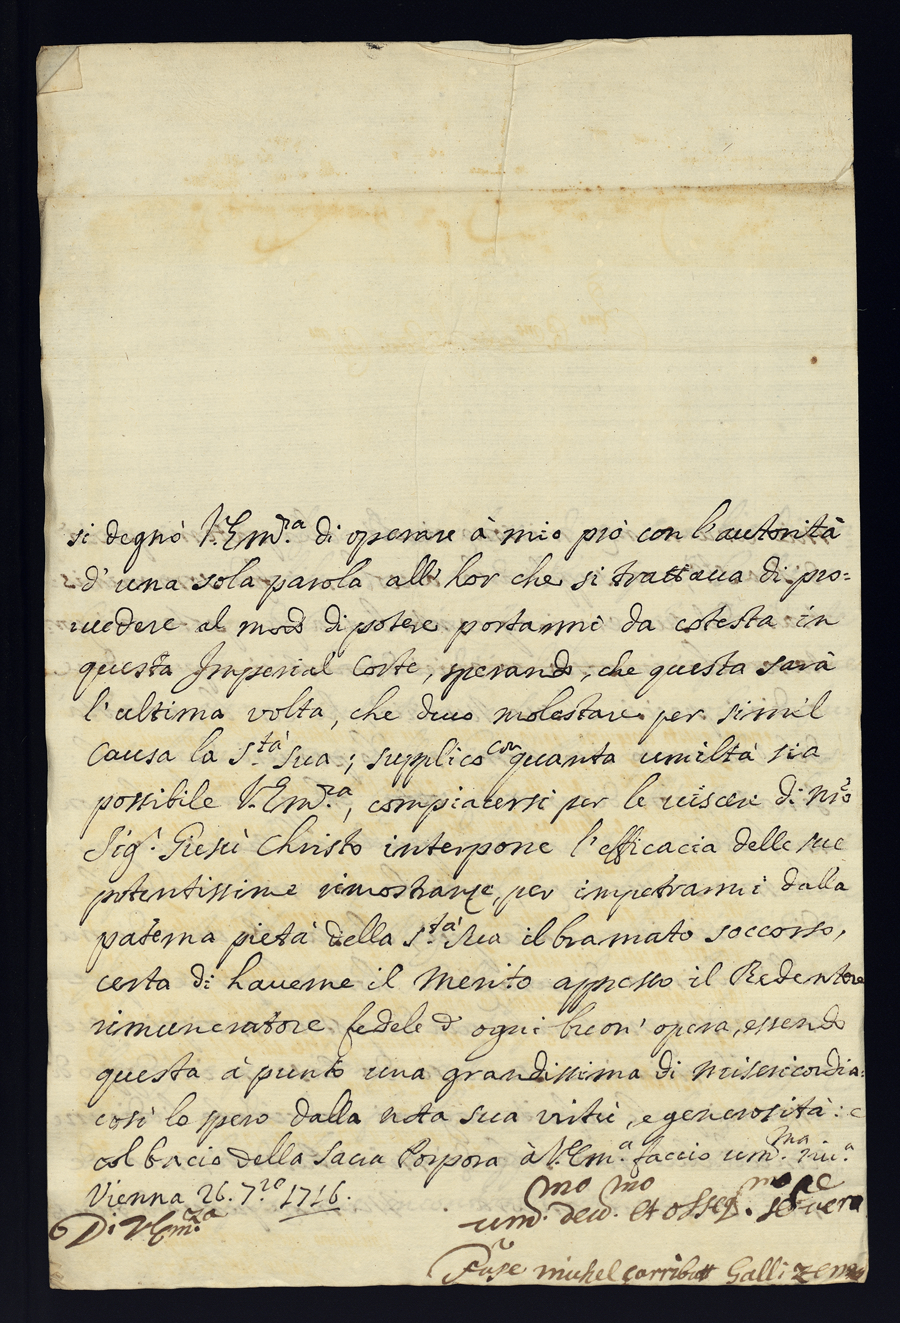 si degnò V. Em.ᶻᵃ di operare à mio prò con l'autorità
d'una sola parola all'hor che si trattaua di pro=
uedere al modo di potere portarmi da cotesta in
questa Imperial Corte, sperando, che questa sarà
l'ultima volta, che deuo molestare per simil
causa la S.ᵗᵃ̀ Sua; supplico con quanta umiltà sia
possibile V. Em.ᶻᵃ, compiacersi per le uiscere di nr̃o
Sig.ʳ Giesù Christo interpone l'efficacia delle sue
potentissime rimostranze, per impetrarmi dalla
paterna pietà della S.ᵗᵃ̀ Sua il bramato soccorso,
certa di hauerne il merito appresso il Redentore
rimuneratore fedele d'ogni buon' opera, essendo
questa à punto una grandissima di misericordia:
così lo spero dalla nota sua virtù, e generosità: e
col bacio della Sacra Porpora à V. Em.ᵃ faccio um.ᵐᵃ riu.ᵃ
Vienna 26. 7.ʳᵒ 1716.
Di V. Em.ᶻᵃ
um.ᵐᵒ deu.ᵐᵒ et osseq.ᵐᵒ se uero
michel Galli